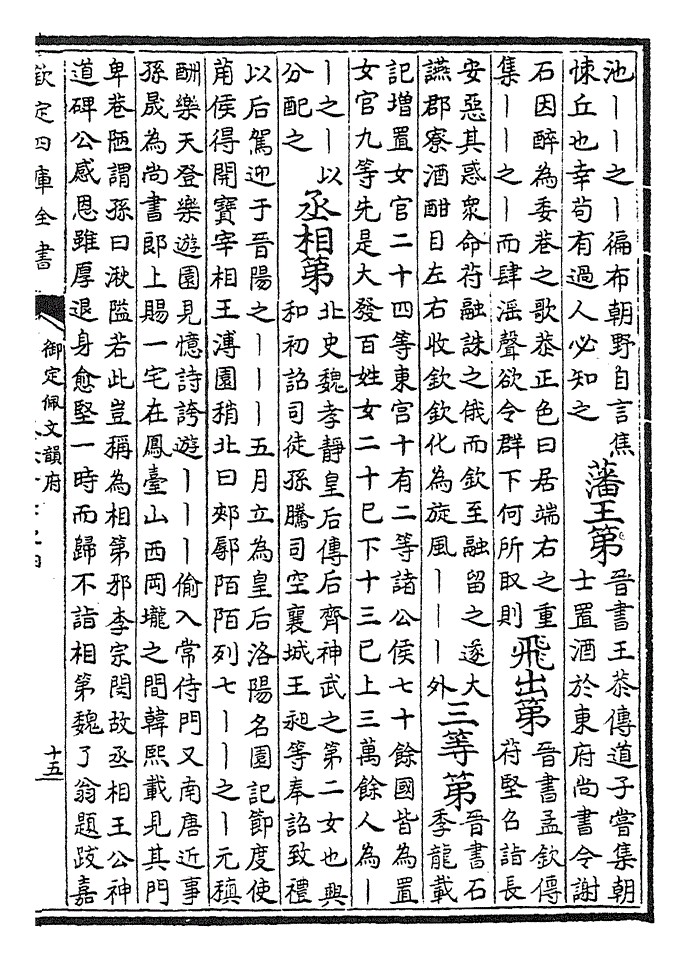 池丨丨之丨徧布朝野自言焦
悚丘也幸苟有過人必知之
藩王第
晉書王恭傳道子嘗集朝
士置酒於東府尚書令謝
石因醉為委巷之歌恭正色曰居端右之重
集丨丨之丨而肆滛聲欲令群下何所取則
飛出第
晉書孟欽傳
苻堅召詣長
安惡其惑衆命苻融誅之俄而欽至融留之遂大
讌郡寮酒酣目左右收欽欽化為旋風丨丨丨外
三等第
晉書石
季龍載
記増置女官二十四等東宫十有二等諸公侯七十餘國皆為置
女官九等先是大發百姓女二十已下十三已上三萬餘人為丨
丨之丨以
分配之
丞相第
北史魏孝靜皇后傳后齊神武之第二女也興
和初詔司徒孫騰司空襄城王昶等奉詔致禮
以后駕迎于晉陽之丨丨丨五月立為皇后洛陽名園記節度使
莆侯得開寶宰相王溥園稍北曰郟鄏陌陌列七丨丨之丨元稹
酬樂天登樂遊園見憶詩誇遊丨丨丨偷入常侍門又南唐近事
孫晟為尚書郎上賜一宅在鳳臺山西岡壠之間韓熙載見其門
卑巷陋謂孫曰湫隘若此豈稱為相第邪李宗閔故丞相王公神
道碑公感恩雖厚退身愈堅一時而歸不詣相第魏了翁題跋嘉
欽定四庫全書
御定佩文韻府
十五